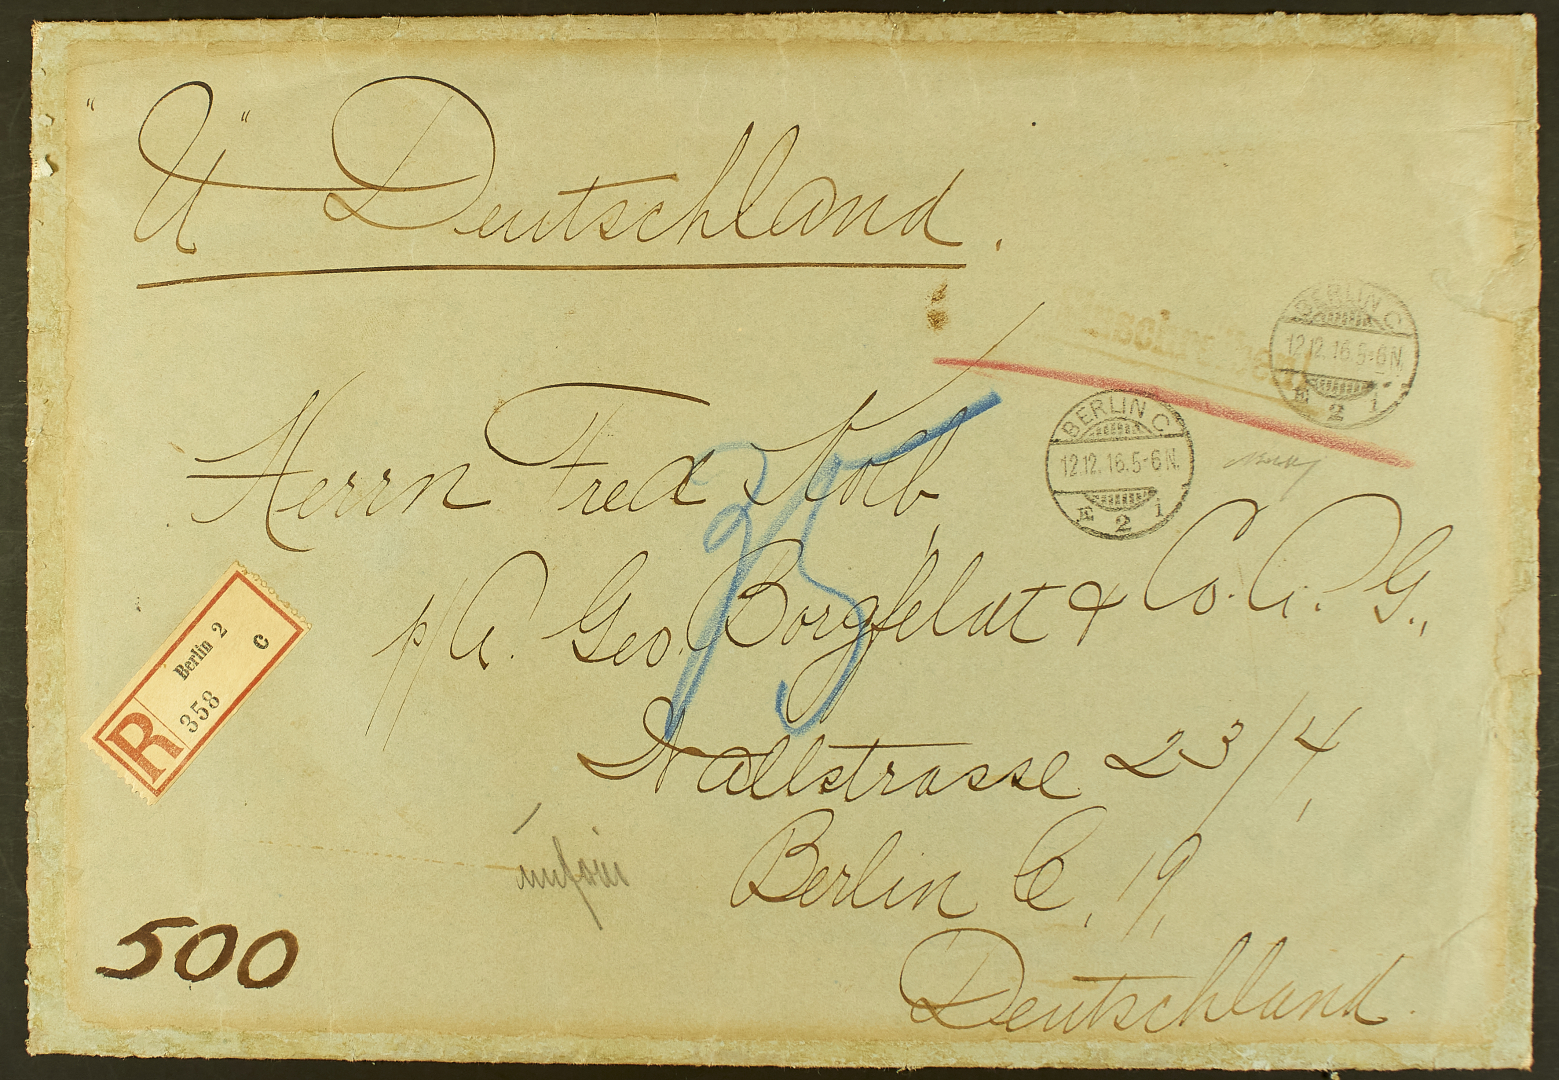 "U" Deutschland.
BERLIN C
12.12.16.5-6N.
Æ 2 i
BERLIN C
12.12.16.5-6N.
Æ 2 i
Herrn Fred Kolb,
p/A. Geo. Borgfeldt & Co. A. G.,
35
Wallstrasse 23/4,
Berlin C, 19,
Deutschland.
R
Berlin 2
c
358
500